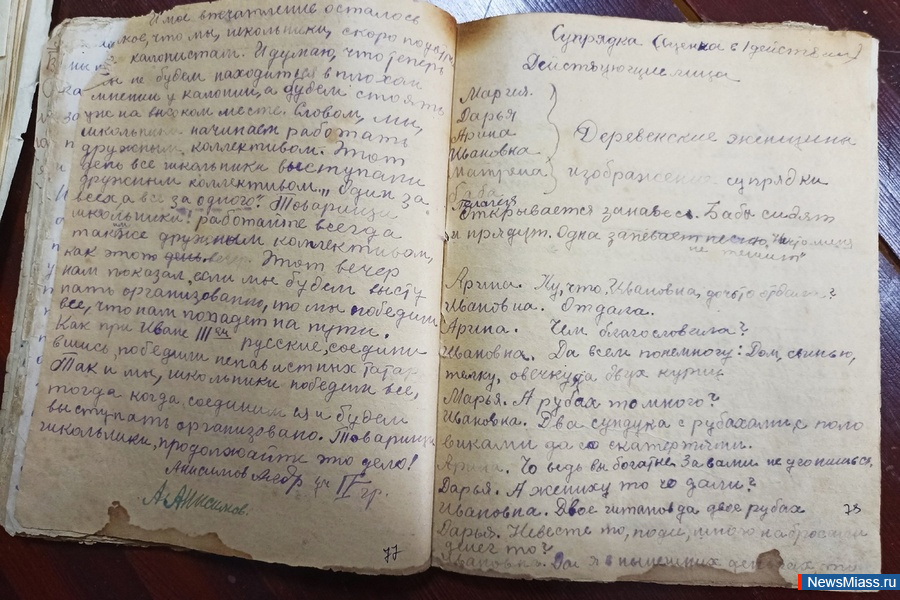 И мое впечатление осталось
таков, что мы, школьники, скоро
колонистам. И думаю, что теперь
мы не будем находиться в плохом
мнении у колонии, а будем стоять
уже на высоком месте. Словом, мы,
школьники начинаем работать
дружным коллективом. Этот
день все школьники выступали
дружным коллективом „Один за
всех, а все за одного". Товарищи
школьники! работайте всегда
также дружным коллективом,
как этот день. Этот вечер
нам показал, если мы будем высту
пать организованно, то мы победим
все, что нам попадет на пути.
Как при Иване III ем русские, соедини
вшись, победили ненавистных татар.
Так и мы, школьники победим все,
тогда когда соединимся и будем
выступать организовано. Товарищи
школьники, продолжайте это дело!
Анисимов уч IV гр.
А. Анисимов.
77
Супрядка (Сценка в 1 действии)
Действующие лица
Мария.
Дарья
Арина
Ивановка
Матрёна
баба
Палагея
Деревенские женщины
изображение супрядки
Открывается занавесь. Бабы сидят
и прядут. Одна запевает песню,
не
Арина. Ну, что, Ивановна, дочь то отдала?
Ивановна. Отдала.
Арина. Чем благословала?
Ивановна. Да всем понемногу: Дом, свинью,
телку, овечку да двух куриц.
Марья. А рубах то много?
Ивановна. Два сундука с рубахами, с поло
виками да со скатертями.
Арина. Чо ведь вы богаты. За вами не угонишься.
Дарья. А жениху то чо дали?
Ивановна. Двое штанов да двое рубах
78
Дарья. Невесте то, поди, много набросали
денег то?
Ивановна. Да
NewsMiass.ru